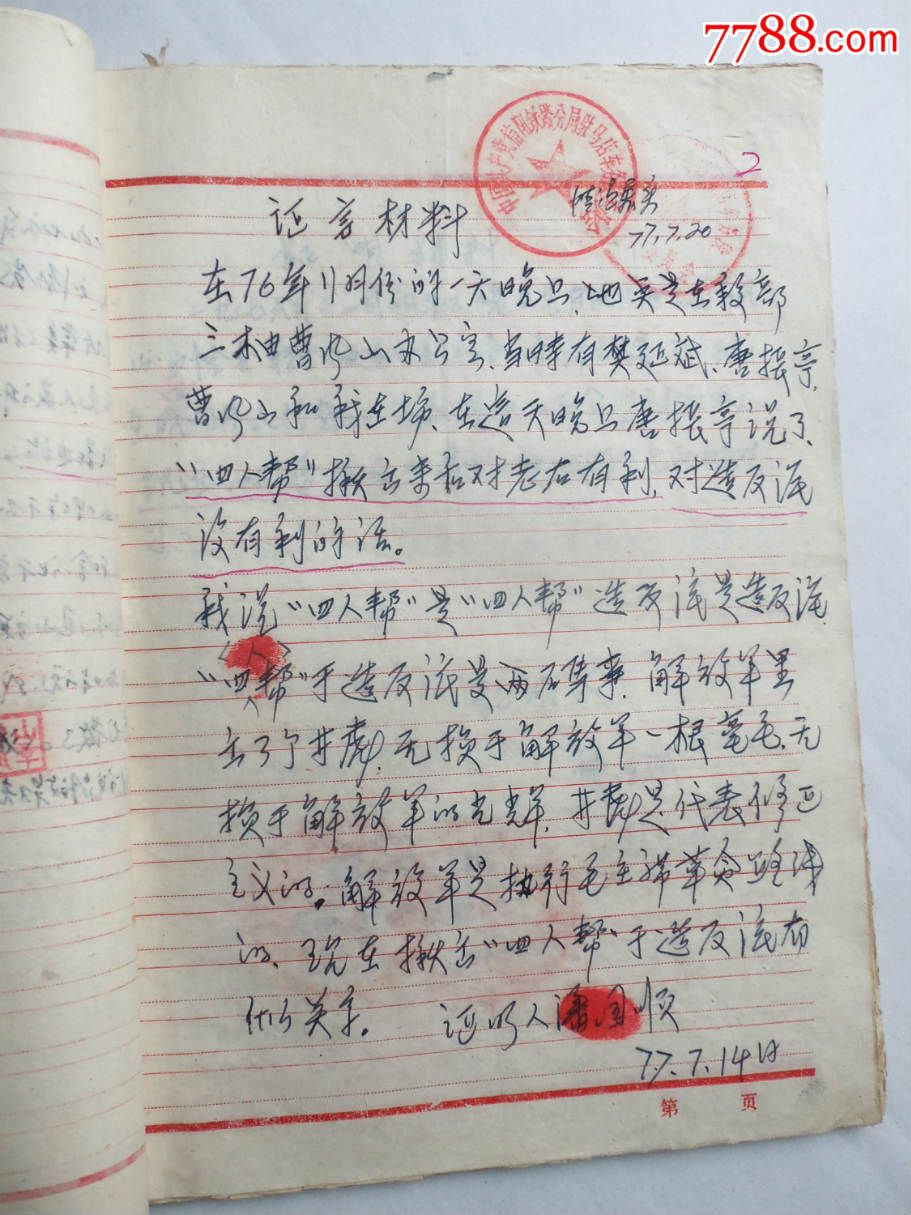 7788.com
2
中国共产党信阳铁路分局驻马店车
情况属实
77.7.20
证言材料
在76年11月份的一天晚上、地点是在教部
三楼曹风山办公室、当时有樊延斌、唐振亭、
曹风山和我在场、在这天晚上唐振亭说了、
“四人帮”揪出来后对老右有利、对造反派
没有利的话。
我说“四人帮”是“四人帮”造反派是造反派、
“四人帮”于造反派是两码事、解放军里
出了个林彪、无损于解放军一根毫毛、无
损于解放军的光荣、林彪是代表修正
主义的。解放军是执行毛主席革命路线
的、现在揪出“四人帮”于造反派有
什么关系。 证明人潘国顺
77.7.14日
第 页